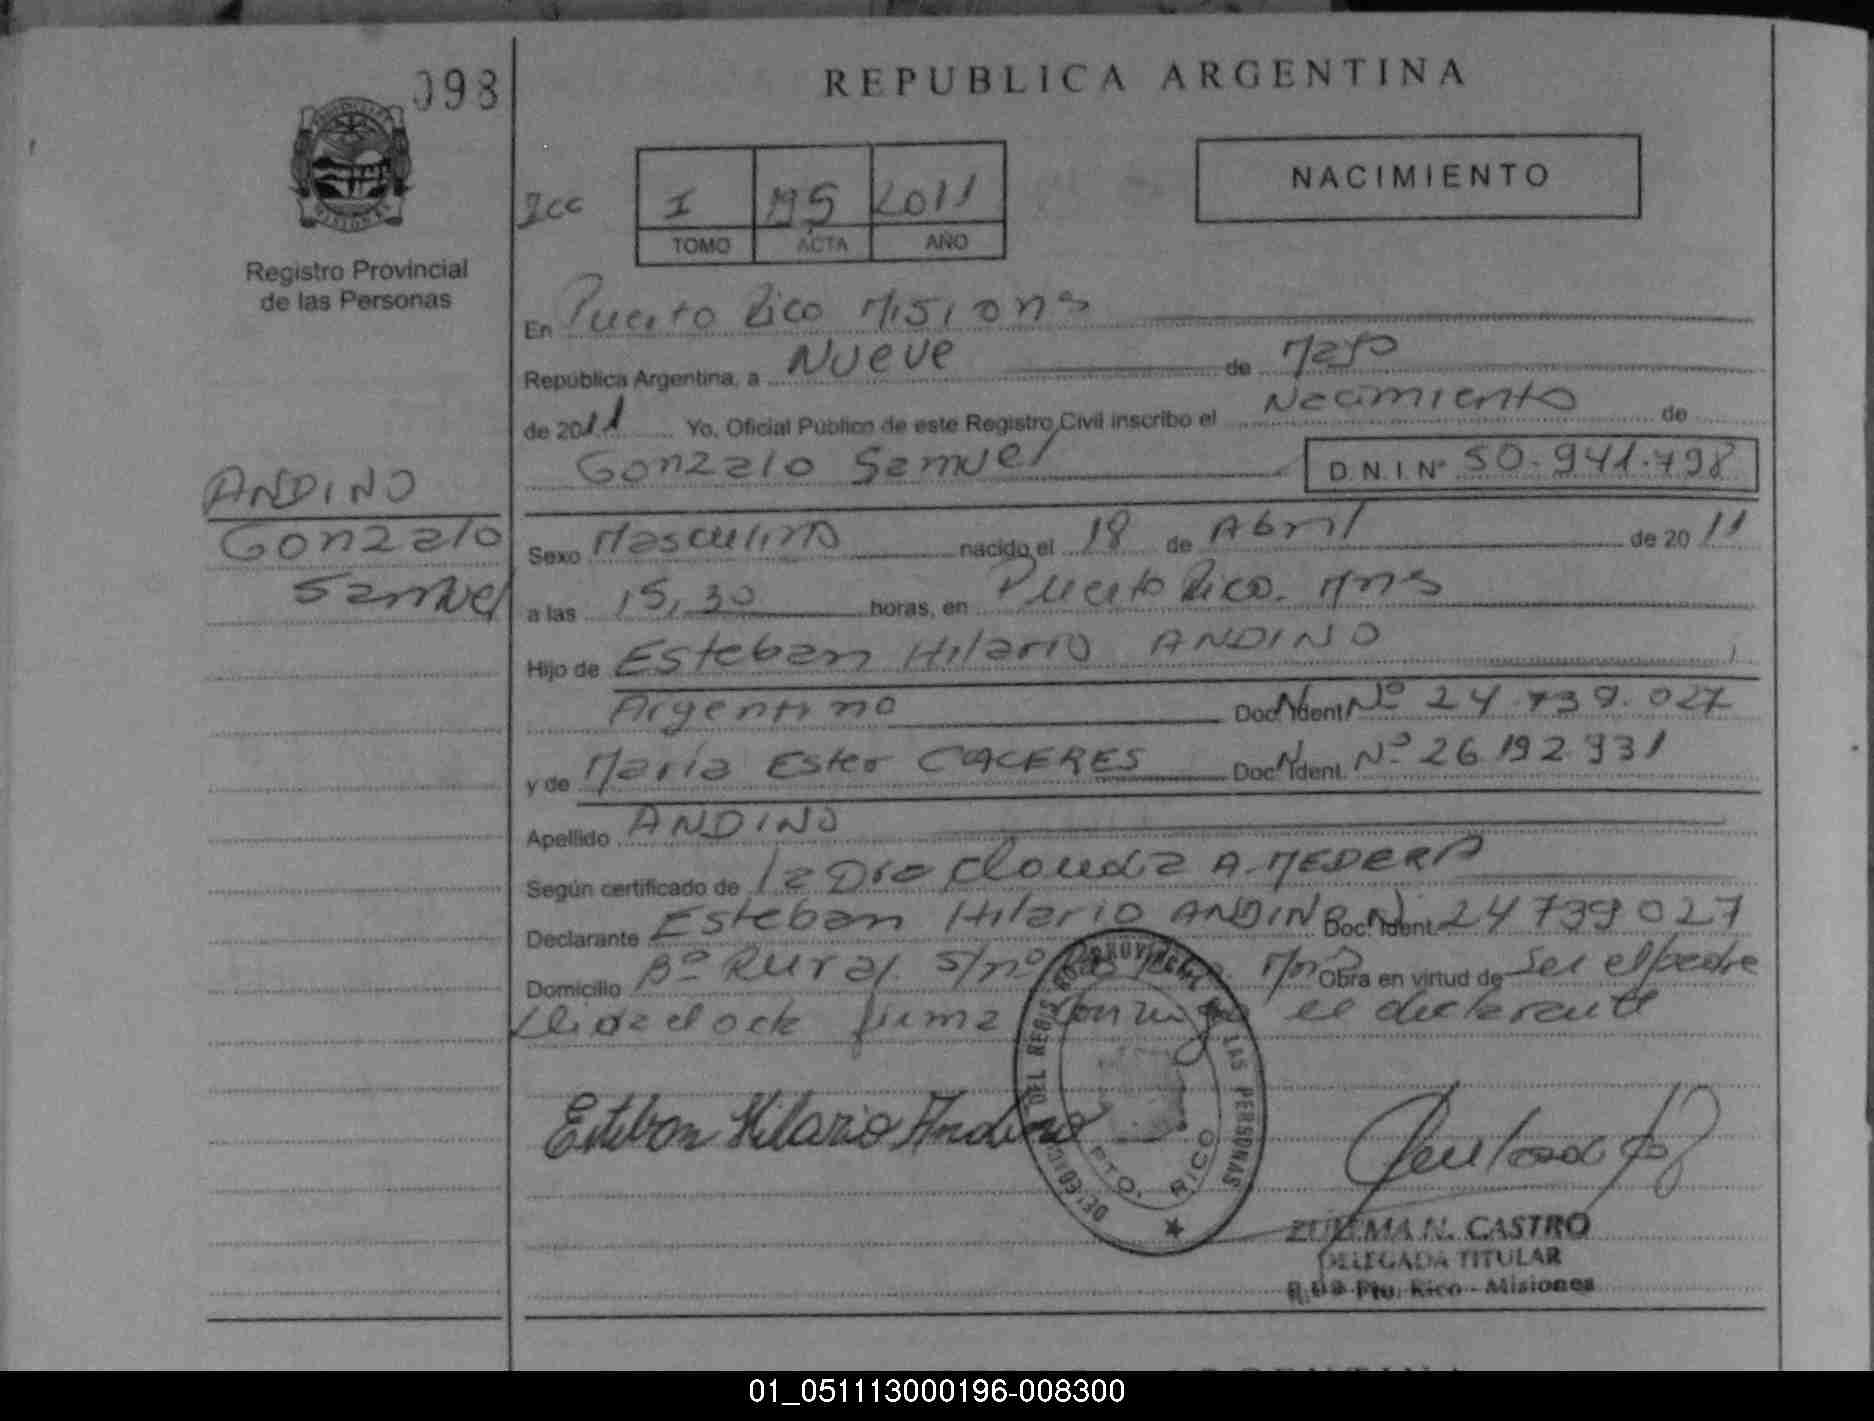 098
REPUBLICA ARGENTINA
NACIMIENTO
Icc
I 195 2011
TOMO ACTA AÑO
PROVINCIA
MISIONES
Registro Provincial
de las Personas
En Puerto Rico Misions
República Argentina, a Nueve de Mayo
de 2011 Yo, Oficial Público de este Registro Civil inscribo el Nacimiento de
Gonzalo Samuel D.N.I.Nº 50.941.798
ANDINO
Gonzalo
Samuel
Sexo Masculino nacido el 18 de Abril de 2011
a las 15,30 horas, en Puerto Rico. Mns
Hijo de Esteban Hilario ANDINO
Argentino Doc. Ident. Nº 24.739.027
y de María Ester CACERES Doc. Ident. Nº 26.192.931
Apellido ANDINO
Según certificado de la Dra Claudia A. MEDERA
Declarante Esteban Hilario ANDINO Doc. Ident. 24739027
Domicilio Bº Rural s/nº Mns Obra en virtud de Ser el padre
firma el declarante
Esteban Hilario Andino
DEL REGISTRO PROVINCIAL DE LAS PERSONAS
PTO. RICO
ZULEMA N. CASTRO
DELEGADA TITULAR
Pto. Rico - Misiones
01_051113000196-008300